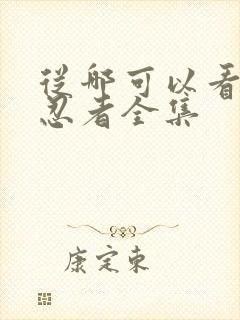 从哪可以看
忍者全集
康定东